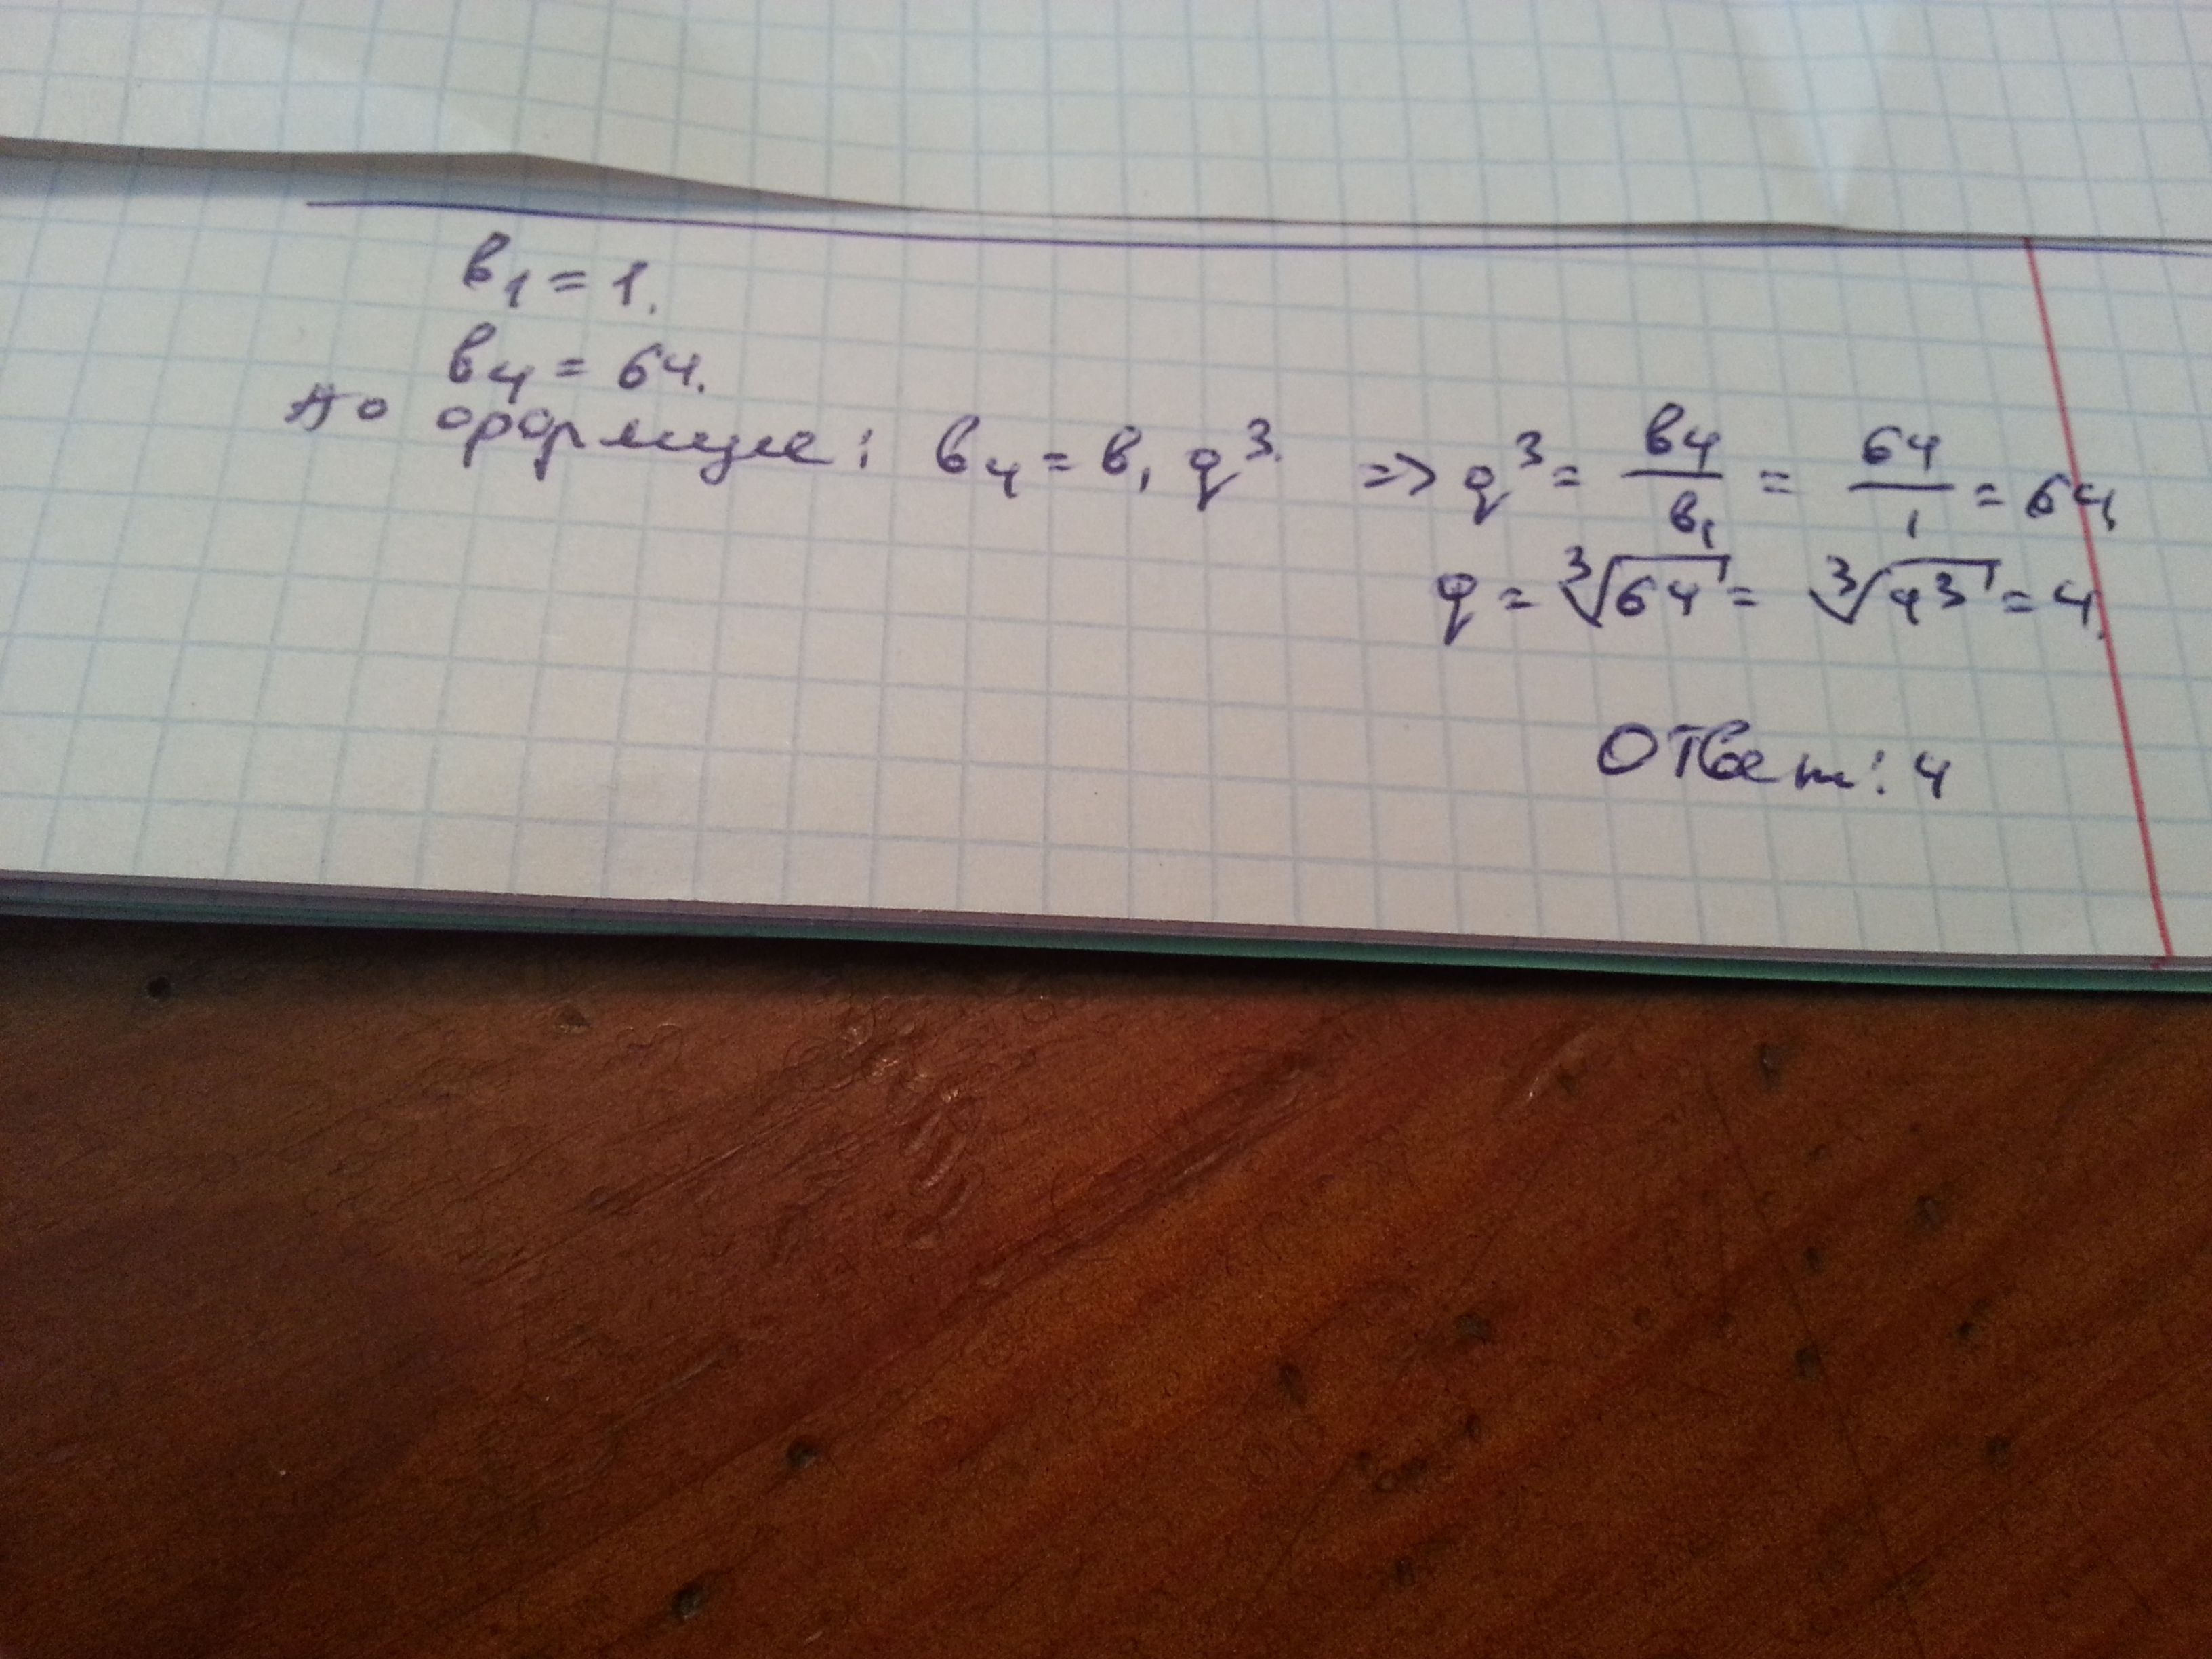 в₁ = 1.
в₄ = 64.
По формуле: в₄ = в₁ q³. => q³ = в₄/в₁ = 64/1 = 64,
q = ∛64 = ∛4³ = 4.
Ответ: 4